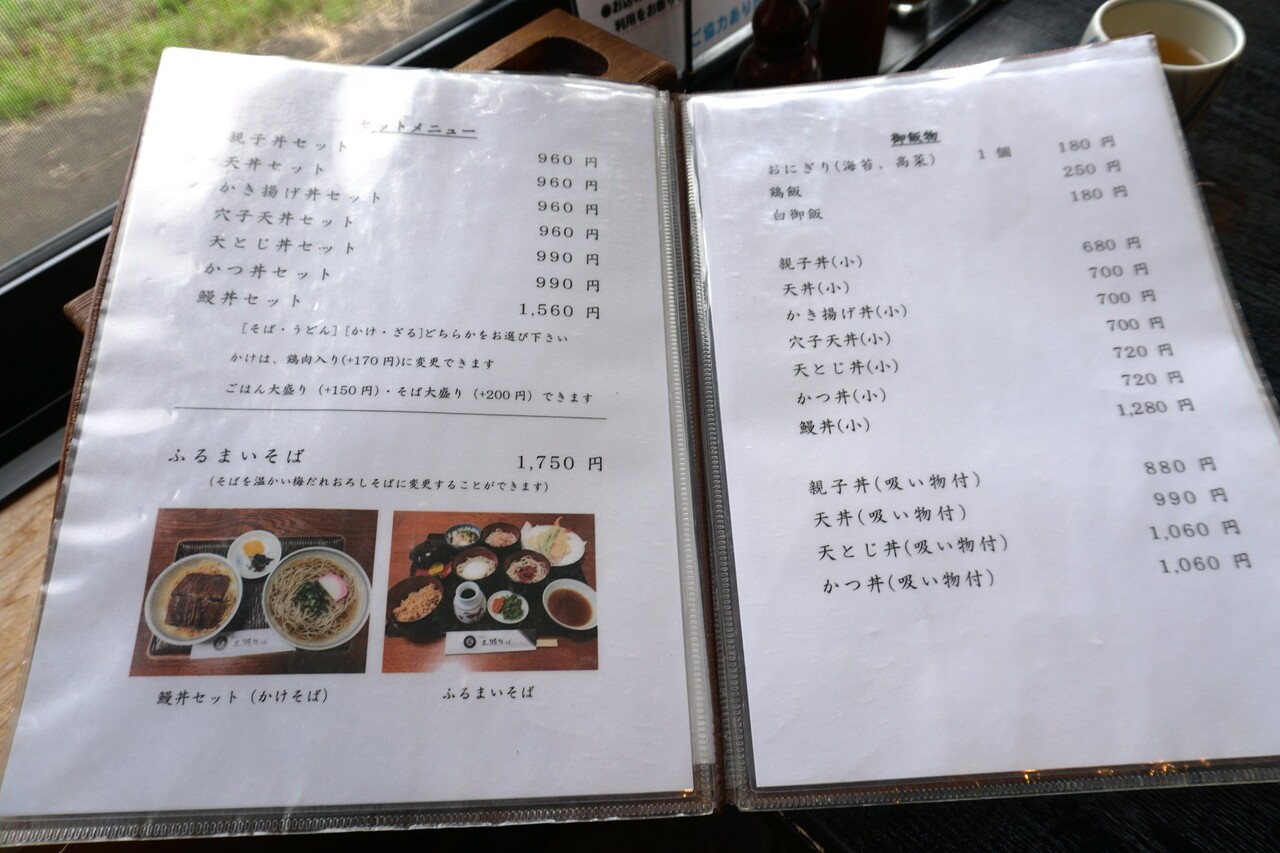 ●お店
利用をお断り
ご協力あり
セットメニュー
親子丼セット 960 円
天丼セット 960 円
かき揚げ丼セット 960 円
穴子天丼セット 960 円
天とじ丼セット 990 円
かつ丼セット 990 円
鰻丼セット 1,560 円
[そば・うどん][かけ・ざる]どちらかをお選び下さい
かけは、鶏肉入り(+170円)に変更できます
ごはん大盛り (+150円)・そば大盛り (+200円) できます
ふるまいそば 1,750 円
(そばを温かい梅だれおろしそばに変更することができます)
鰻丼セット (かけそば)
ふるまいそば
御飯物
おにぎり(海苔、高菜) 1個 180 円
鶏飯 250 円
白御飯 180 円
親子丼(小) 680 円
天丼(小) 700 円
かき揚げ丼(小) 700 円
穴子天丼(小) 700 円
天とじ丼(小) 720 円
かつ丼(小) 720 円
鰻丼(小) 1,280 円
親子丼(吸い物付) 880 円
天丼(吸い物付) 990 円
天とじ丼(吸い物付) 1,060 円
かつ丼(吸い物付) 1,060 円